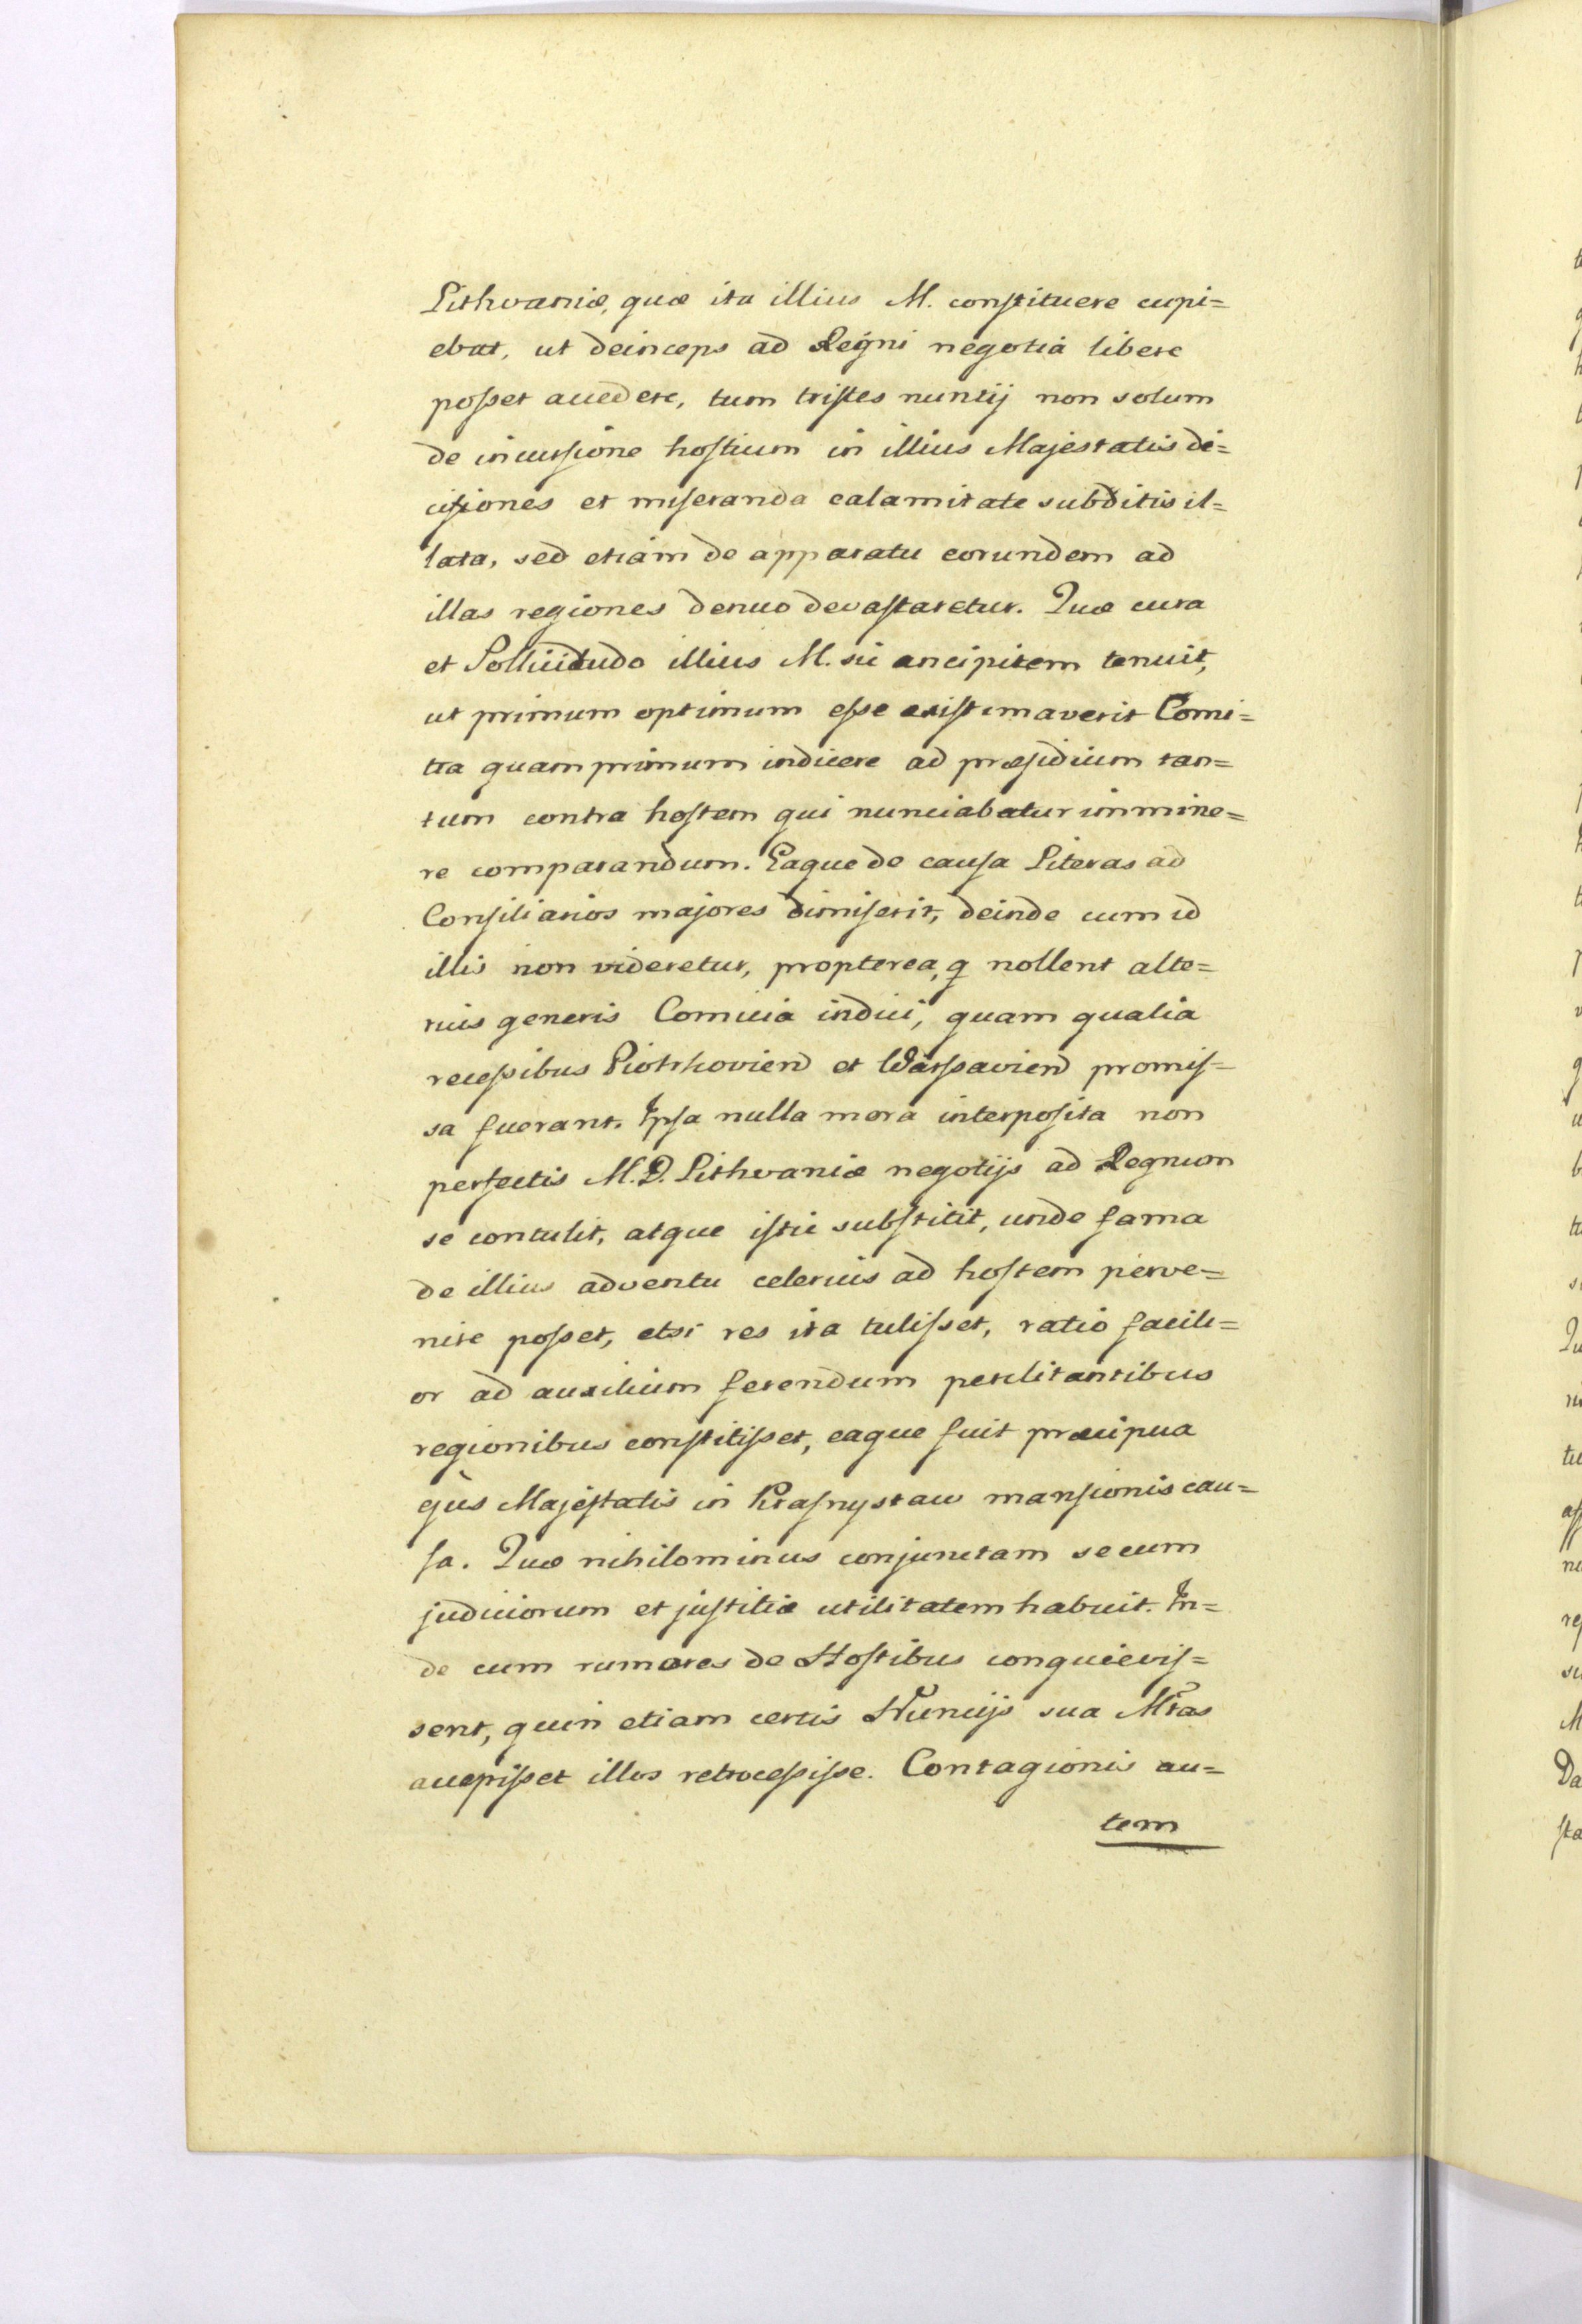 Lithvaniæ, quæ ita illius M. constituere cupi=
ebat, ut deinceps ad Regni negotia libere
posset accedere, tum tristes nuntij non solum
de incursione hostium in illius Majestatis di=
tiones et miseranda calamitate subditis il=
lata, sed etiam de apparatu eorundem ad
illas regiones denuo devastaretur. Quæ cura
et Sollicitudo illius M. sic ancipitem tenuit,
ut primum optimum esse existimaverit Comi=
tia quam primum indicere ad præsidium tan=
tum contra hostem qui nunciabatur immine=
re comparandum. Eaque de causa Literas ad
Consiliarios majores dimiserit, deinde cum id
illis non videretur, propterea, q nollent alte=
rius generis Comicia indici, quam qualia
recessibus Piotrkovien et Warssavien promis=
sa fuerant. Ipsa nulla mora interposita non
perfectis M. D. Lithvaniæ negotijs ad Regnum
se contulit, atque istic substitit, unde fama
de illius adventu celerius ad hostem perve=
nire posset, etsi res ita tulisset, ratio facili=
or ad auxilium ferendum periclitantibus
regionibus constitisset, eaque fuit præcipua
ejus Majestatis in Krasnystaw mansionis cau=
sa. Quæ nihilominus conjunctam secum
judiciorum et justitiæ utilitatem habuit. In=
de cum rumores de Hostibus conquievis=
sent, quin etiam certis Nuncijs sua Mtas
accepisset illos retrocessisse. Contagionis au=
tem